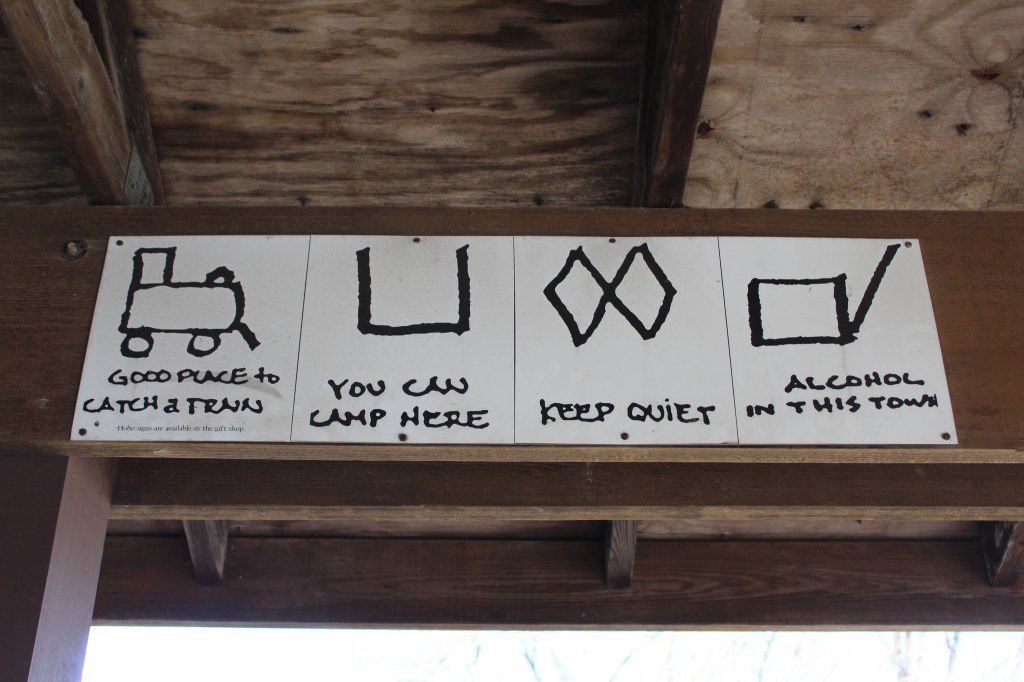 GOOD PLACE to
CATCH a TRAIN
Hobo signs are available in the gift shop.
YOU CAN
CAMP HERE
KEEP QUIET
ALCOHOL
IN THIS TOWN